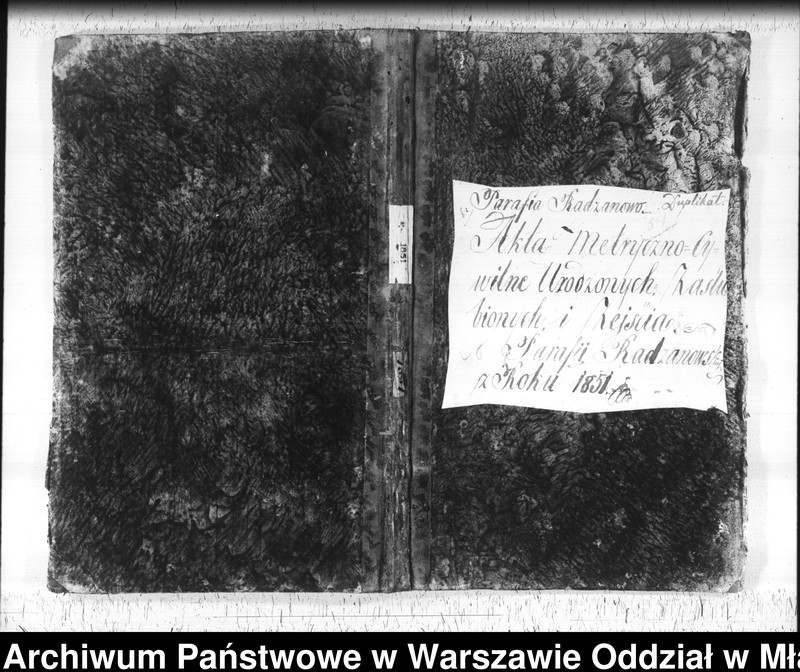 Parafia Radzanowo. Duplikat.
Akta Metryczno=Cy=
wilne Urodzonych, Zaślu
bionych, i Zejścia
Parafii Radzanowski
z Roku 1851.
1851
Archiwum Państwowe w Warszawie Oddział w Mł